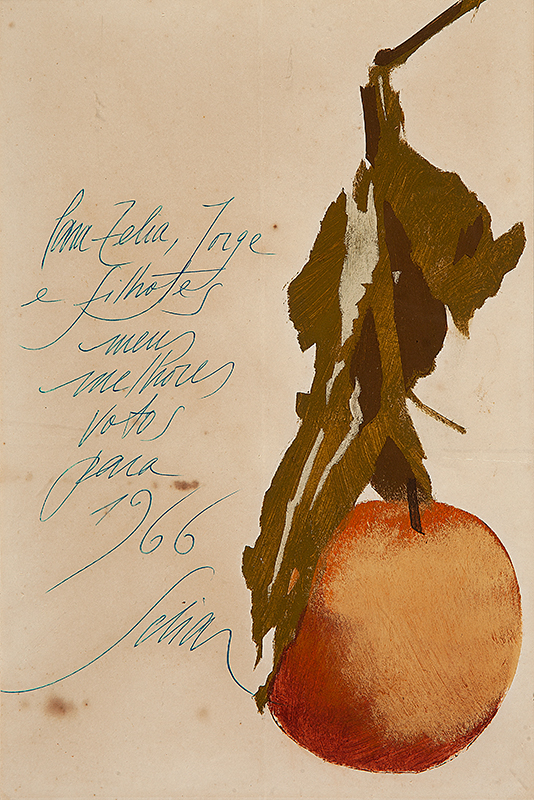 Para Zelia, Jorge
e filhotes
meus
melhores
votos
para
1966
Scliar